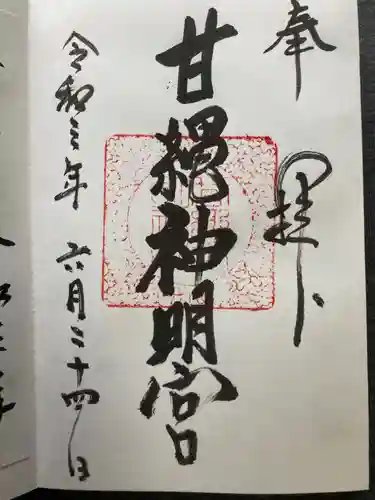 奉拝
甘縄神明宮
令和三年 六月二十四日